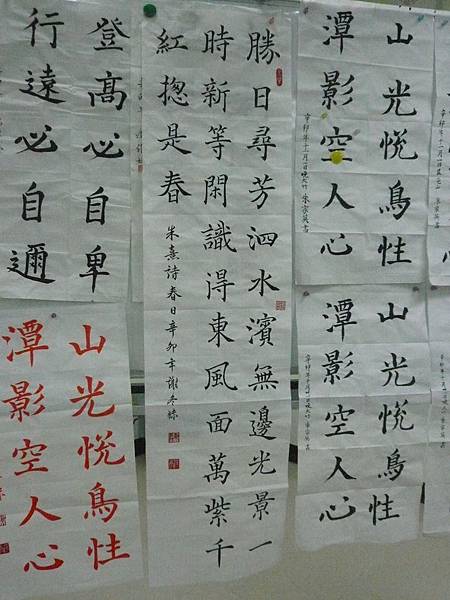 山光悅鳥性
潭影空人心
勝日尋芳泗水濱無邊光景一
時新等閑識得東風面萬紫千
紅揔是春
朱熹詩春日辛卯年謝冬
登高必自卑
行遠必自邇
山光悅鳥性
潭影空人心
山光悅鳥性
潭影空人心